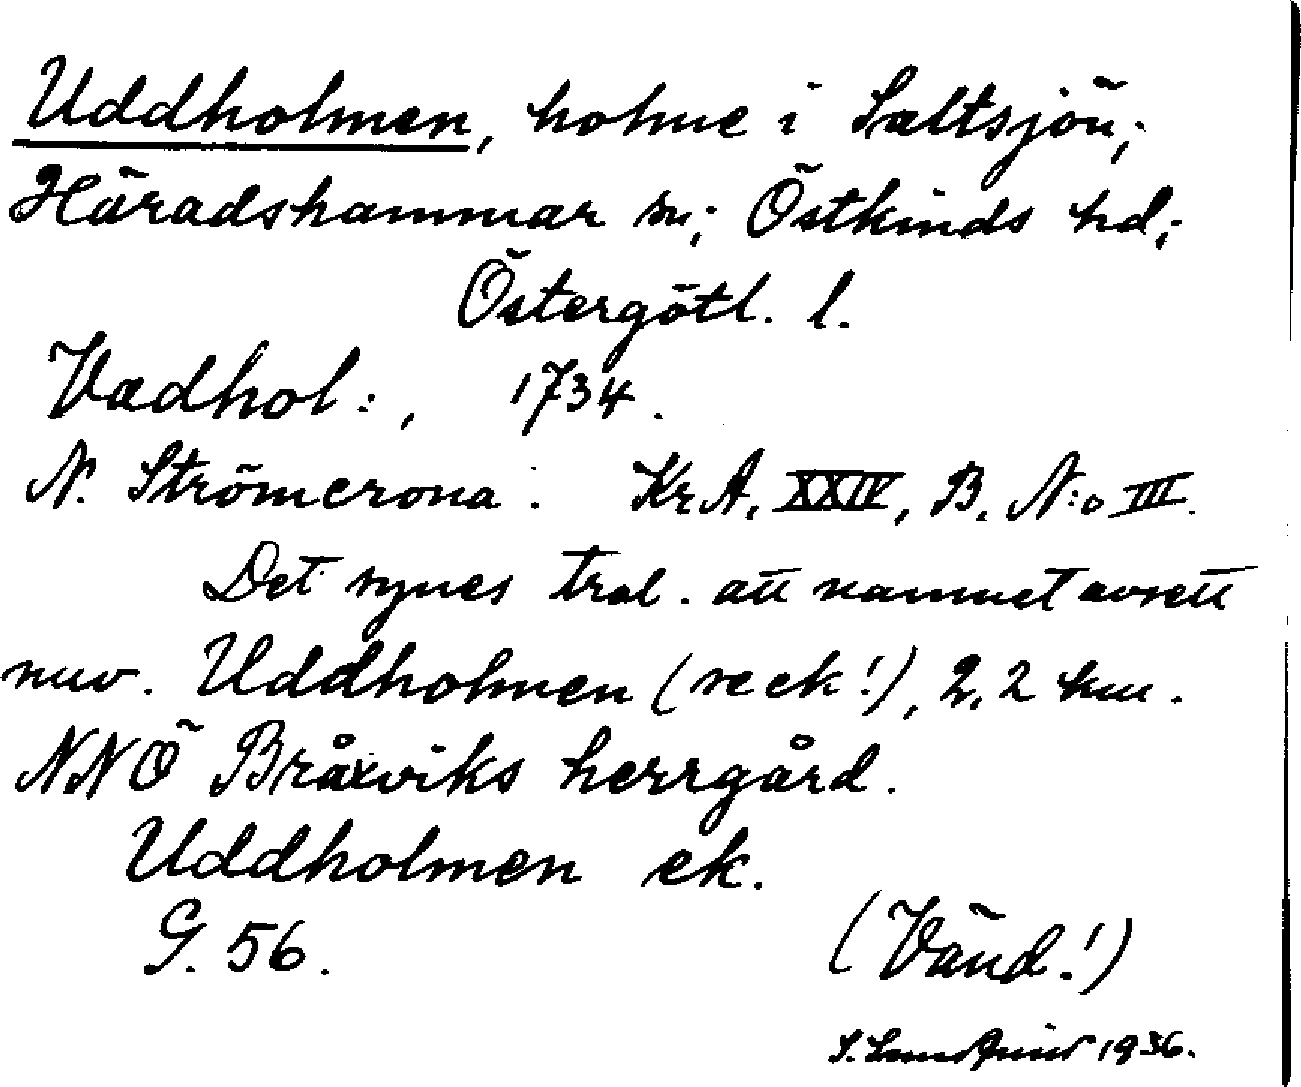 Uddholmen, holme i Saltsjön,;
Häradshammar sn,; Östkinds hd,;
Östergötl. l.
Vadhol:, 1734.
N. Strömcrona: KrA, XXIV, B. N:o III.
Det synes trol. att namnet avsett
nuv. Uddholmen (se ek!), 2,2 km.
NNÖ Bråxviks herrgård.
Uddholmen ek.
G. 56.
(Vänd!)
S. 1936.